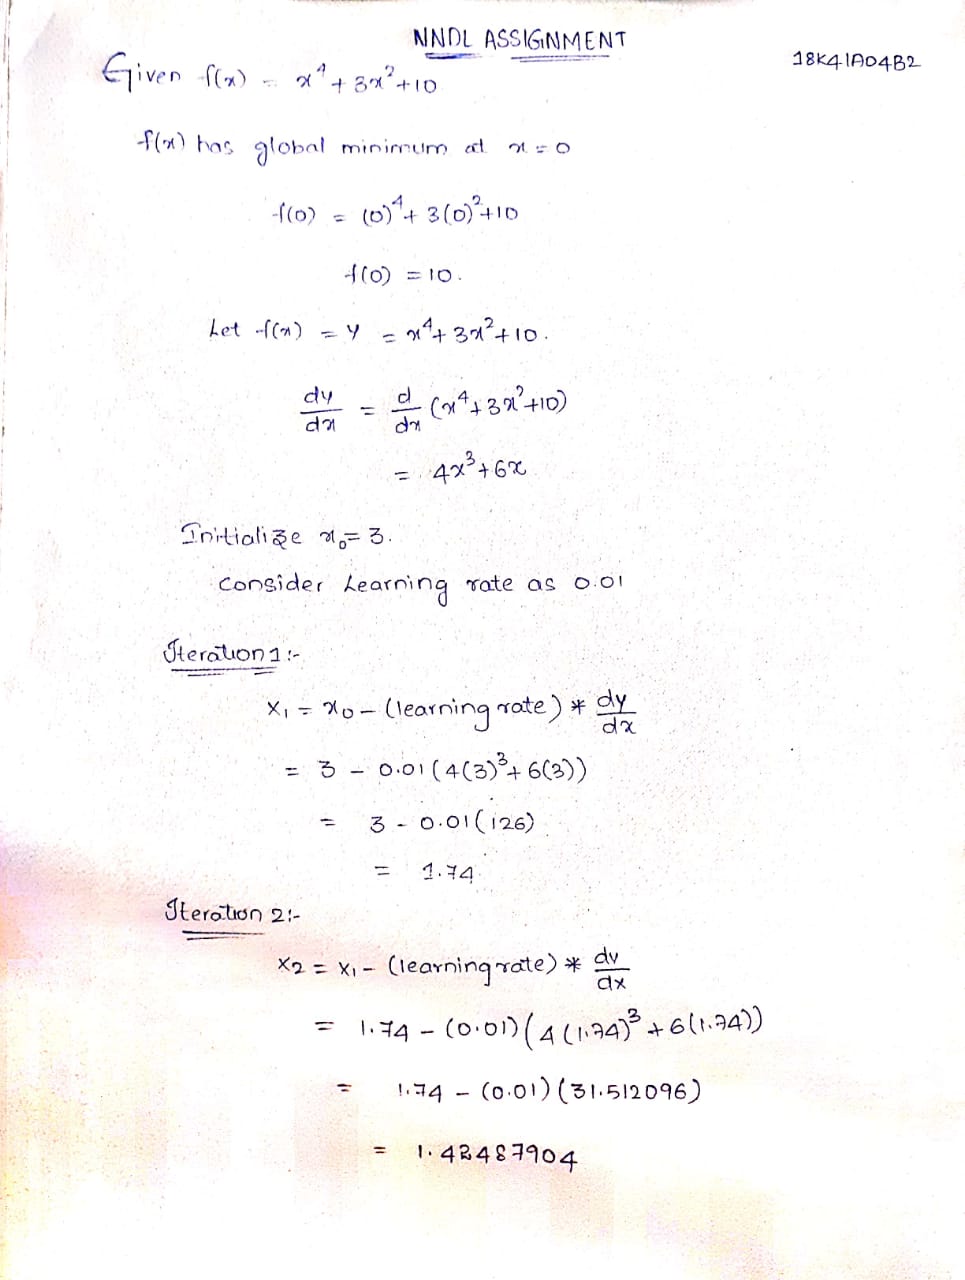 NNDL ASSIGNMENT
18K41A04B2
Given f(x) = x⁴ + 3x² + 10
f(x) has global minimum at x = 0
f(0) = (0)⁴ + 3(0)² + 10
f(0) = 10.
Let f(x) = y = x⁴ + 3x² + 10.
dy/dx = d/dx (x⁴ + 3x² + 10)
= 4x³ + 6x
Initialize x₀ = 3.
Consider Learning rate as 0.01
Iteration 1 :-
x₁ = x₀ - (learning rate) * dy/dx
= 3 - 0.01 (4(3)³ + 6(3))
= 3 - 0.01 (126)
= 1.74
Iteration 2 :-
x₂ = x₁ - (learning rate) * dy/dx
= 1.74 - (0.01) (4 (1.74)³ + 6 (1.74))
= 1.74 - (0.01) (31.512096)
= 1.42487904